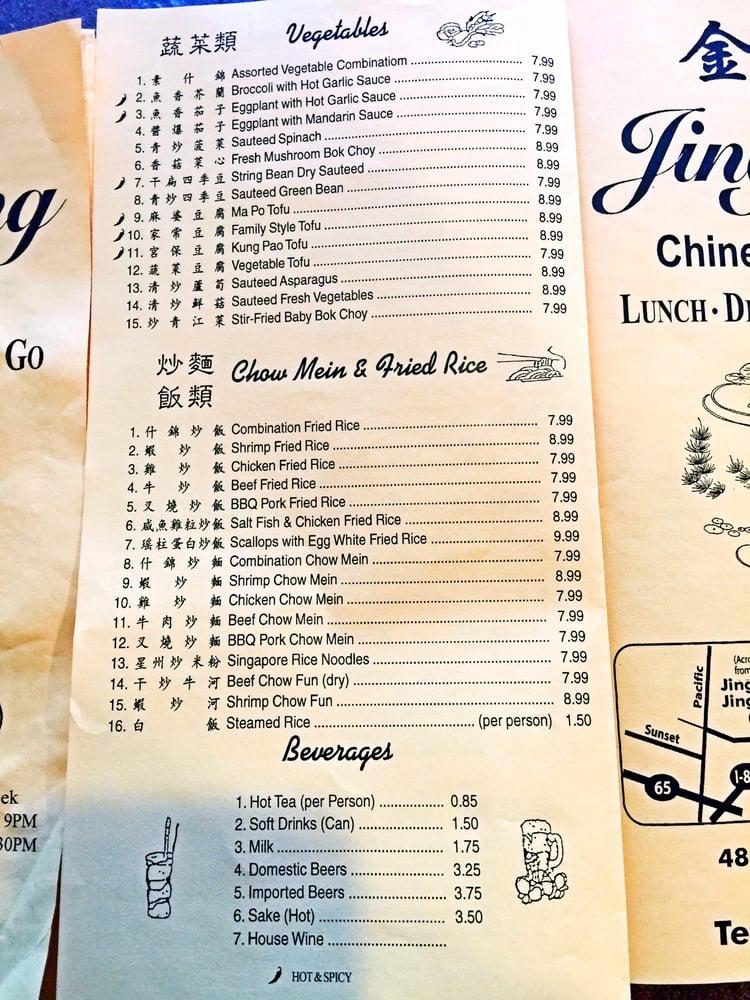 ng
Go
ek
9PM
30PM
蔬菜類 Vegetables
1. 素什錦 Assorted Vegetable Combinatiom 7.99
2. 魚香芥蘭 Broccoli with Hot Garlic Sauce 7.99
3. 魚香茄子 Eggplant with Hot Garlic Sauce 7.99
4. 醬爆茄子 Eggplant with Mandarin Sauce 7.99
5. 青炒菠菜 Sauteed Spinach 7.99
6. 香菇菜心 Fresh Mushroom Bok Choy 8.99
7. 干扁四季豆 String Bean Dry Sauteed 8.99
8. 青炒四季豆 Sauteed Green Bean 7.99
9. 麻婆豆腐 Ma Po Tofu 8.99
10. 家常豆腐 Family Style Tofu 8.99
11. 宮保豆腐 Kung Pao Tofu 8.99
12. 蔬菜豆腐 Vegetable Tofu 7.99
13. 清炒蘆筍 Sauteed Asparagus 8.99
14. 清炒鮮菇 Sauteed Fresh Vegetables 8.99
15. 炒青江菜 Stir-Fried Baby Bok Choy 7.99
炒麵
飯類
Chow Mein & Fried Rice
1. 什錦炒飯 Combination Fried Rice 7.99
2. 蝦炒飯 Shrimp Fried Rice 8.99
3. 雞炒飯 Chicken Fried Rice 7.99
4. 牛炒飯 Beef Fried Rice 7.99
5. 叉燒炒飯 BBQ Pork Fried Rice 7.99
6. 咸魚雞粒炒飯 Salt Fish & Chicken Fried Rice 8.99
7. 瑤柱蛋白炒飯 Scallops with Egg White Fried Rice 9.99
8. 什錦炒麵 Combination Chow Mein 7.99
9. 蝦炒麵 Shrimp Chow Mein 8.99
10. 雞炒麵 Chicken Chow Mein 7.99
11. 牛肉炒麵 Beef Chow Mein 7.99
12. 叉燒炒麵 BBQ Pork Chow Mein 7.99
13. 星州炒米粉 Singapore Rice Noodles 7.99
14. 干炒牛河 Beef Chow Fun (dry) 7.99
15. 蝦炒河 Shrimp Chow Fun 8.99
16. 白飯 Steamed Rice (per person) 1.50
Beverages
1. Hot Tea (per Person) 0.85
2. Soft Drinks (Can) 1.50
3. Milk 1.75
4. Domestic Beers 3.25
5. Imported Beers 3.75
6. Sake (Hot) 3.50
7. House Wine
HOT & SPICY
金
Jing
Chine
LUNCH · DI
(Acro
from
Jing
Jing
Pacific
Sunset
65
I-8
48
Te